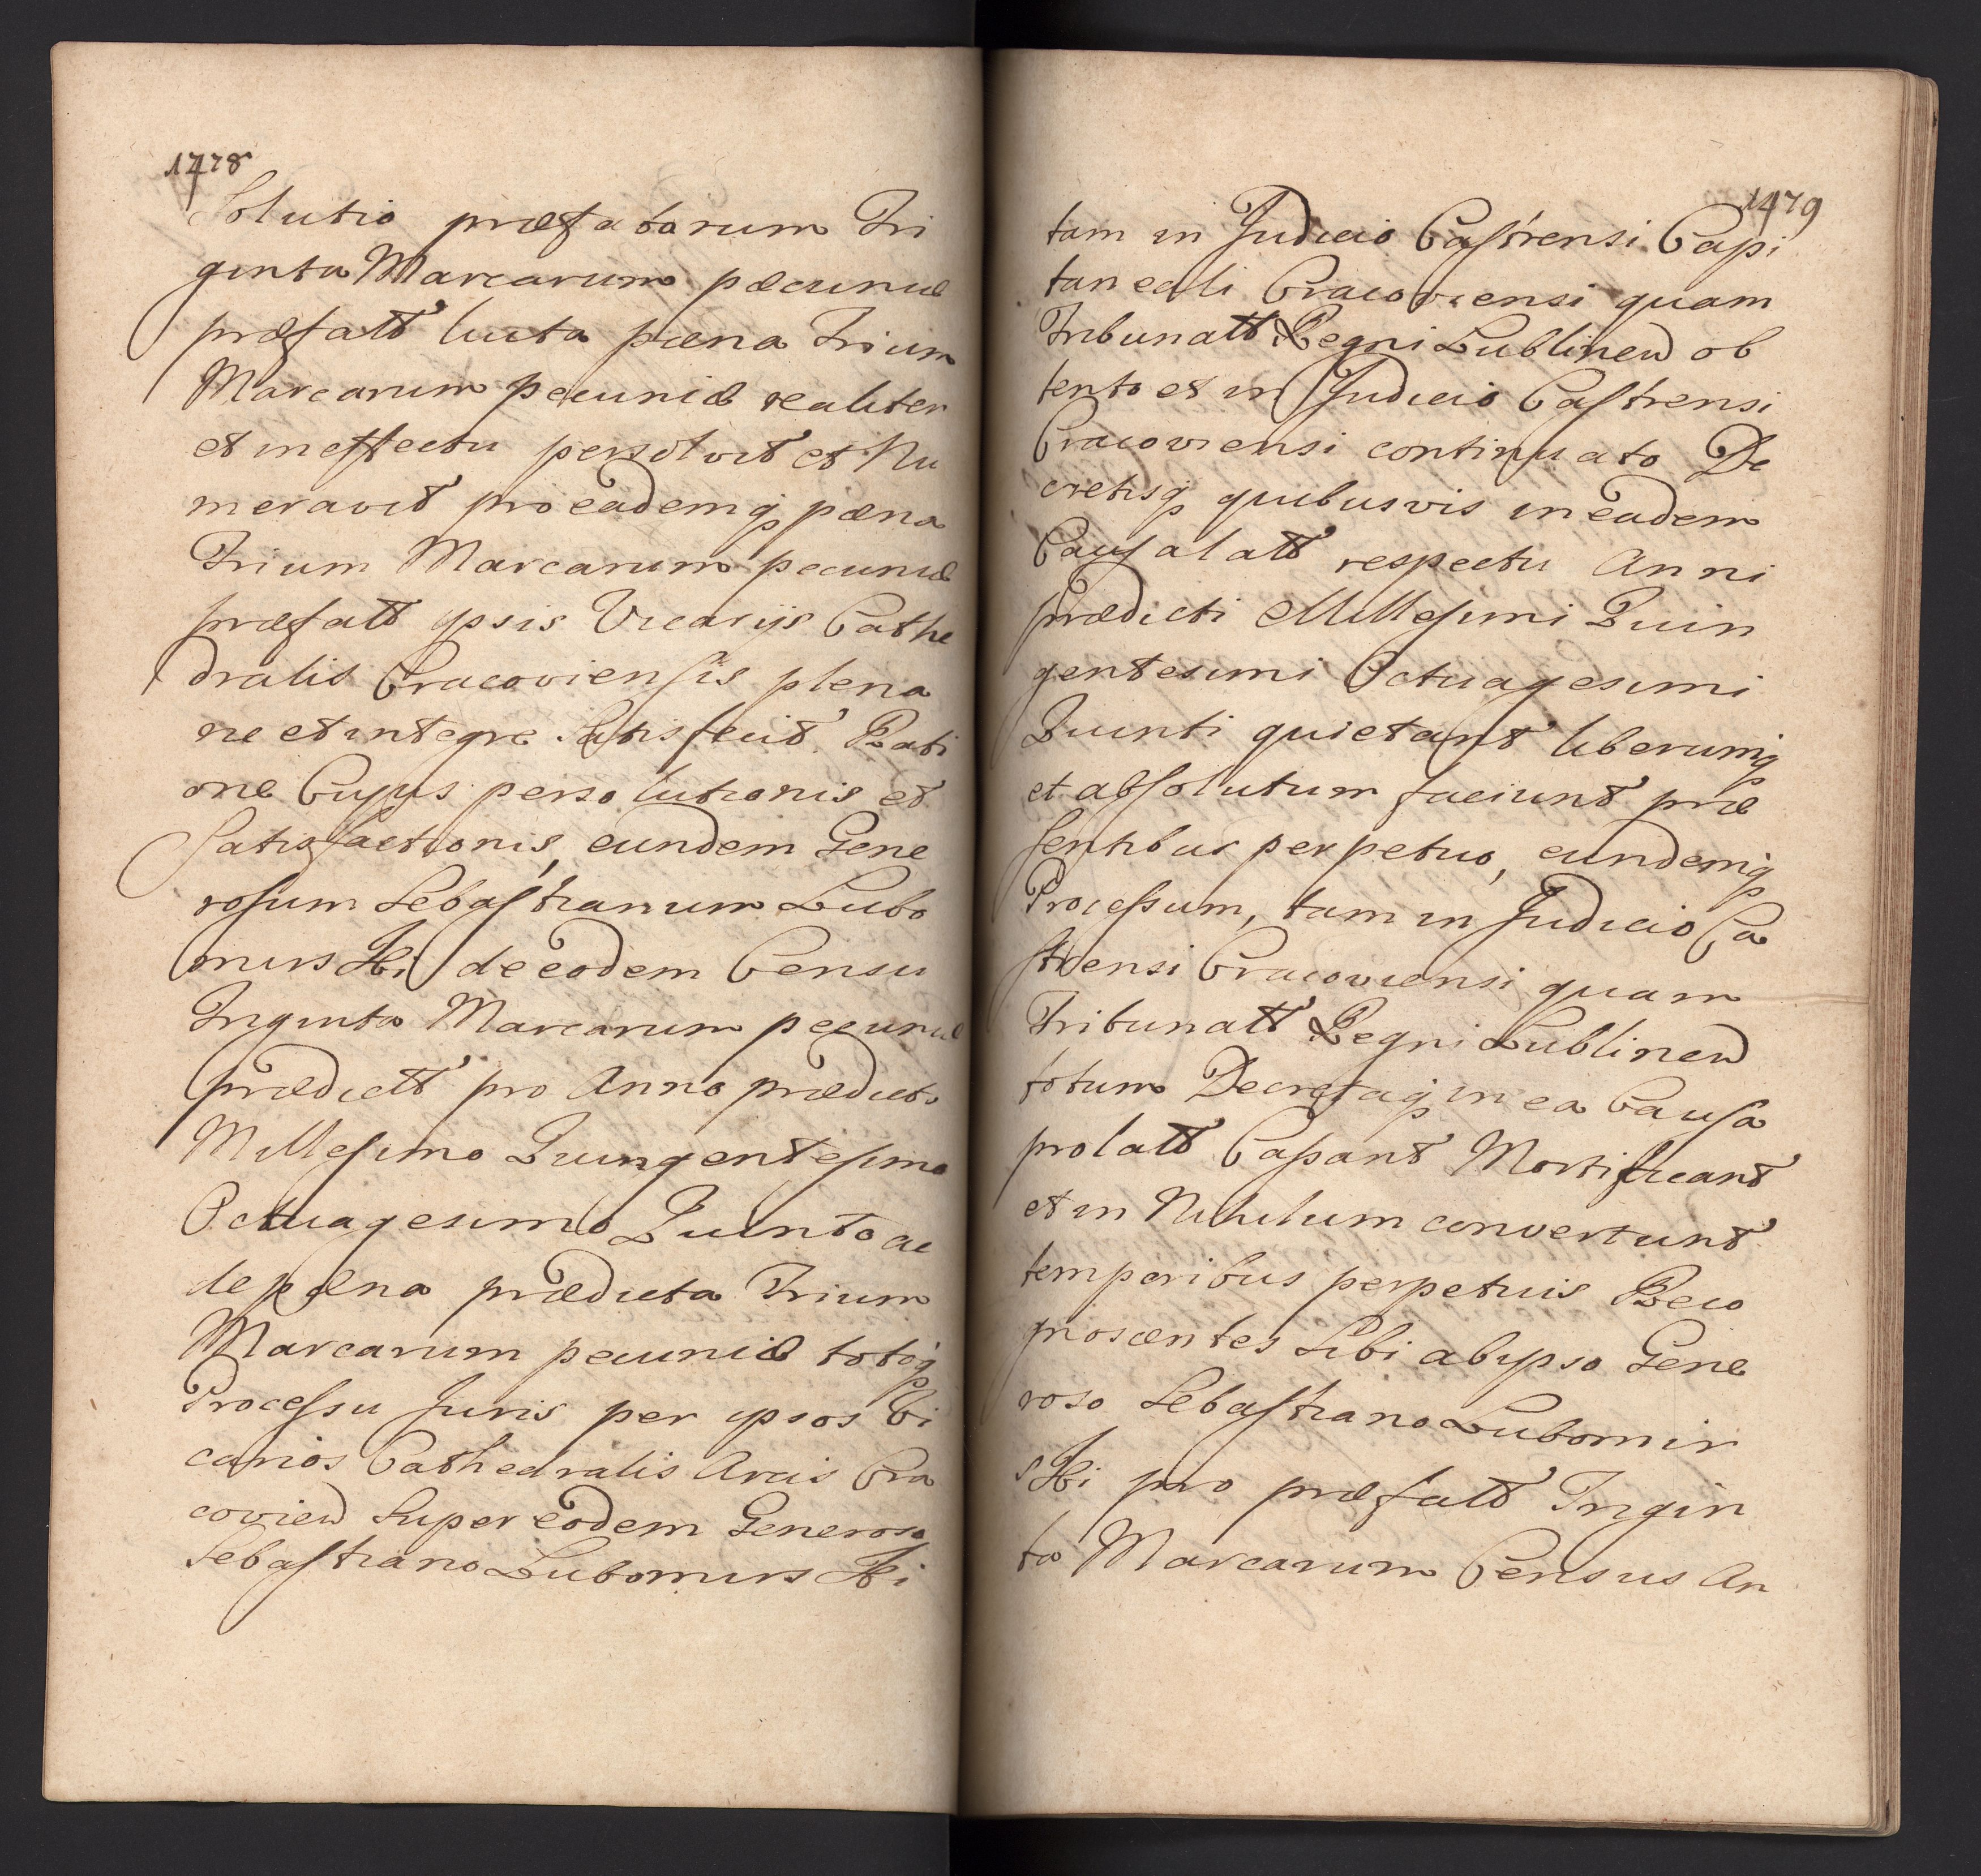 1478
Solutio præfatarum Tri
ginta Marcarum pæcuniæ
præfatt lucta pæna Trium
Marcarum pecuniæ realiter
et in effectu persolvit et Nu
meravit pro eademq pæna
Trium Marcarum pecuniæ
præfatt ipsis Vicarijs Cathe
dralis Cracoviensis plena
rie et integre Satisfecit. Rati
one Cujus persolutionis et
Satisfactionis, eundem Gene
rosum Sebastianum Lubo
mirski de eodem Censu
Triginta Marcarum pecuniæ
prædictt pro Anno prædicto
Millesimo Quingentesimo
Octuagesimo Quinto ac
de pæna prædicta Trium
Marcarum pecuniæ totoq
Processu Juris per ipsos Vi
carios Cathedralis Arcis Cra
covien Super eodem Generoso
Sebastiano Lubomirski
1479
tam in Judicio Castrensi Capi
taneali Cracoviensi quam
Tribunatt Regni Lublinen ob
tento et in Judicio Castrensi
Cracoviensi continuato De
cretisq quibusvis in eadem
Causa latt respectu Anni
prædicti Millesimi Quin
gentesimi Octuagesimi
Quinti quietant liberumq
et absolutum faciunt præ
sentibus perpetuo, eundemq
Processum, tam in Judicio Ca
strensi Cracoviensi quam
Tribunatt Regni Lublinen
totum Decretaq in ea Causa
prolatt Cassant Mortificant
et in Nihilum convertunt
temporibus perpetuis Reco
gnoscentes Sibi ab ipso Gene
roso Sebastiano Lubomir
ski pro præfatt Trigin
ta Marcarum Census An